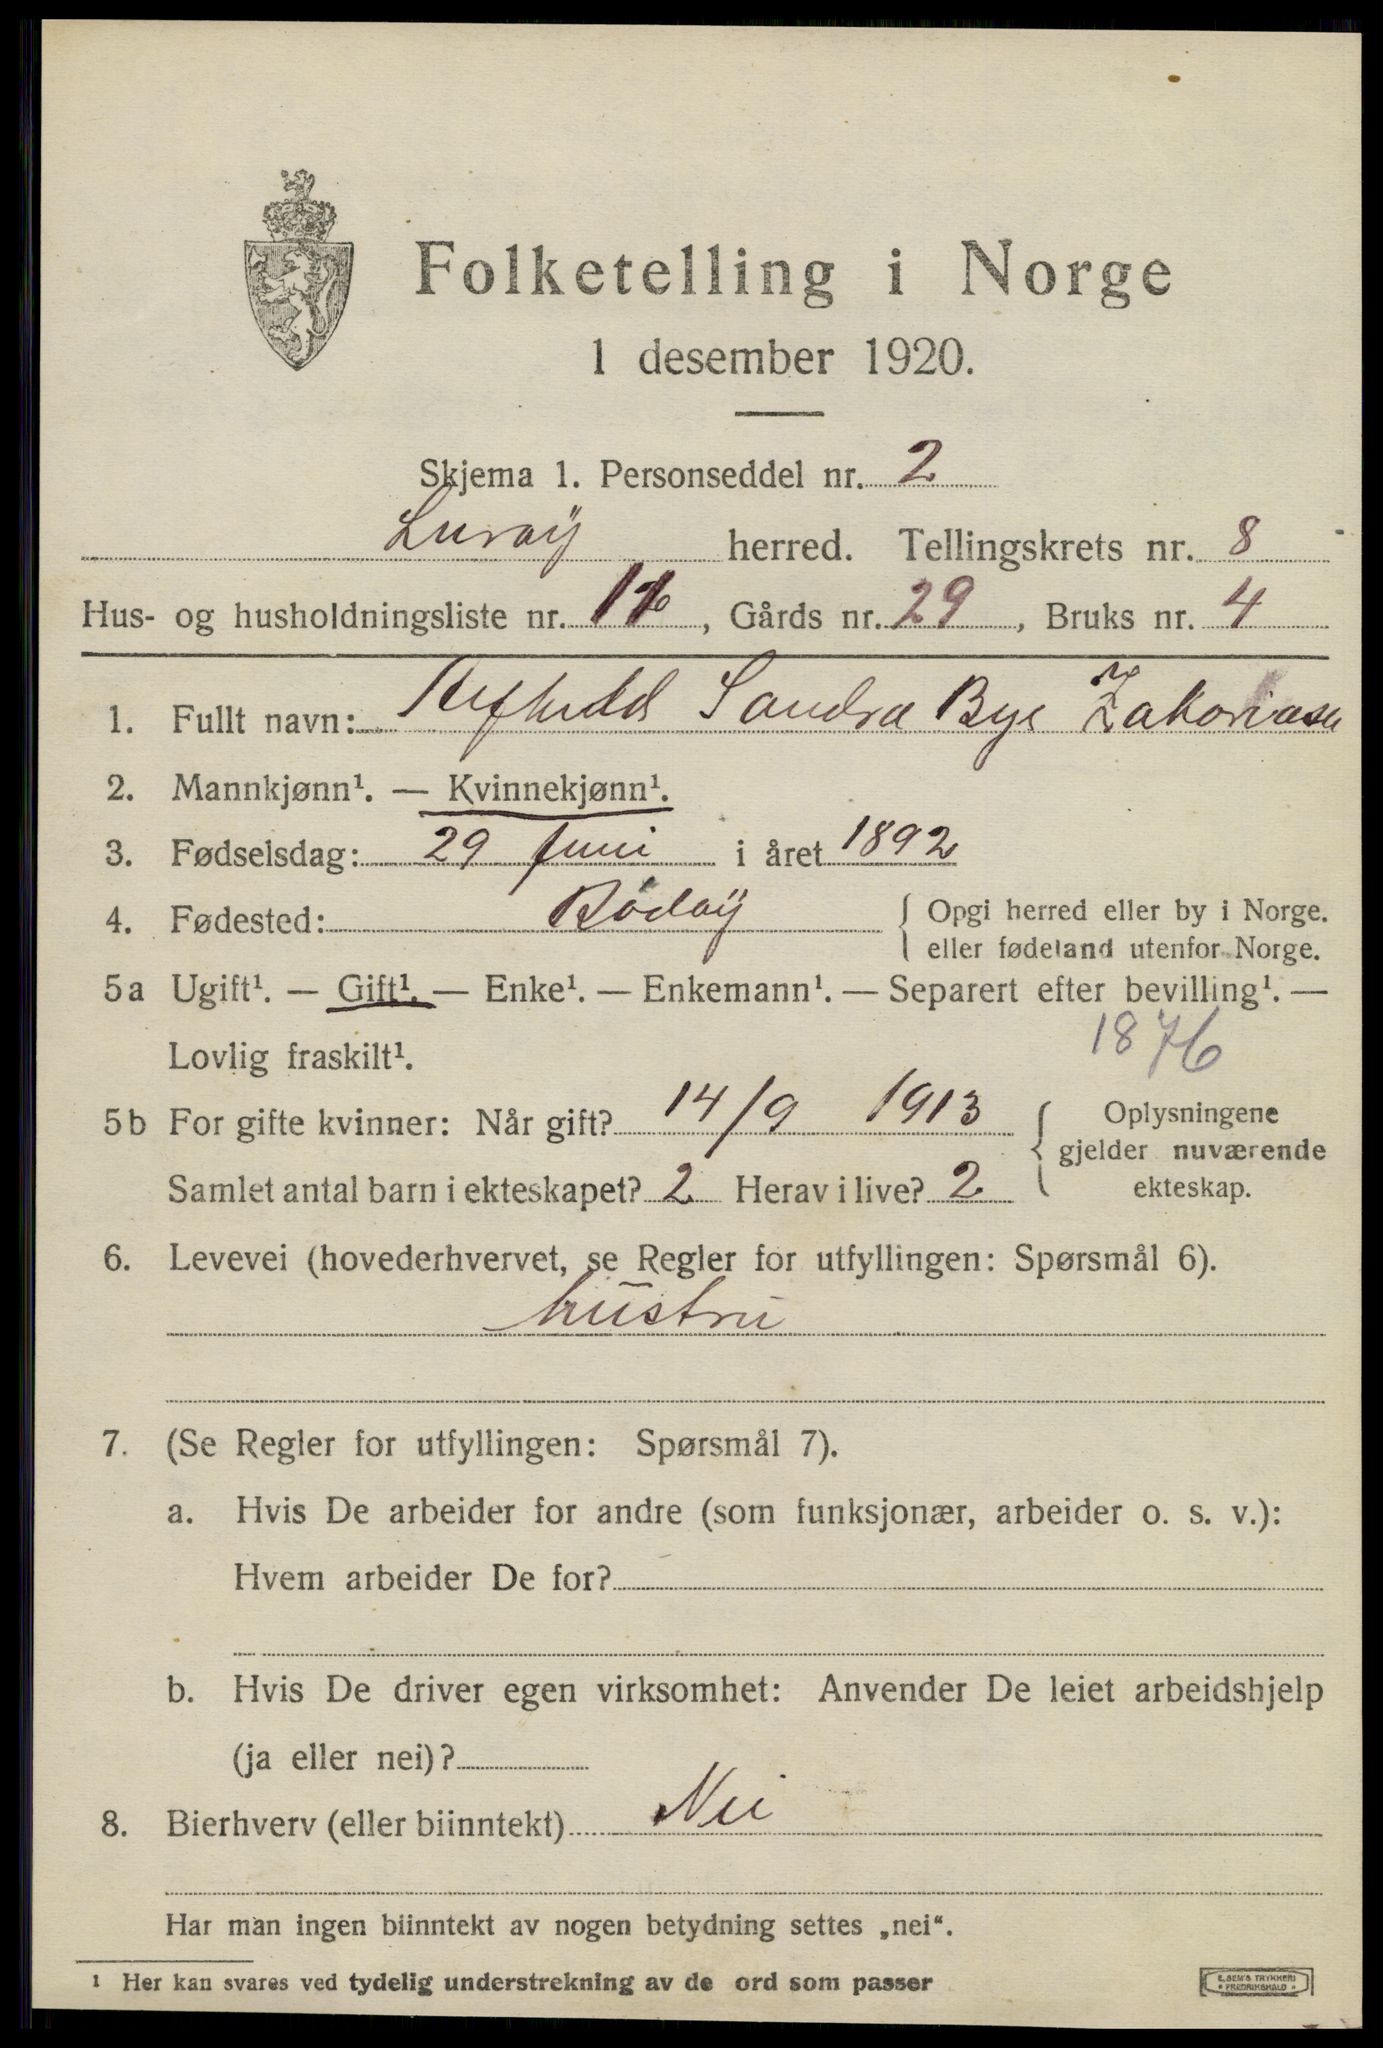 Folketelling i Norge
1 desember 1920.
Skjema 1. Personseddel nr. 2
Lurøy herred. Tellingskrets nr. 8
Hus- og husholdningsliste nr. , Gårds nr. 29, Bruks nr. 4
1. Fullt navn: Sandra Bye Zakariasen
2. Mannkjønn¹. — Kvinnekjønn¹.
3. Fødselsdag: 29 juni i året 1892
4. Fødested: Rødøy { Opgi herred eller by i Norge.
eller fødeland utenfor Norge.
5a Ugift¹. — Gift¹. — Enke¹. — Enkemann¹. — Separert efter bevilling¹. —
Lovlig fraskilt¹. 1876
5b For gifte kvinner: Når gift? 14/9 1913 { Oplysningene
gjelder nuværende
Samlet antal barn i ekteskapet? 2 Herav i live? 2 ekteskap.
6. Levevei (hovederhvervet, se Regler for utfyllingen: Spørsmål 6).
hustru
7. (Se Regler for utfyllingen: Spørsmål 7).
a. Hvis De arbeider for andre (som funksjonær, arbeider o. s. v.):
Hvem arbeider De for?
b. Hvis De driver egen virksomhet: Anvender De leiet arbeidshjelp
(ja eller nei)?
8. Bierhverv (eller biinntekt) Nei
Har man ingen biinntekt av nogen betydning settes „nei“.
¹ Her kan svares ved tydelig understrekning av de ord som passer
E. SEM'S TRYKKERI
* FREDRIKSHALD *